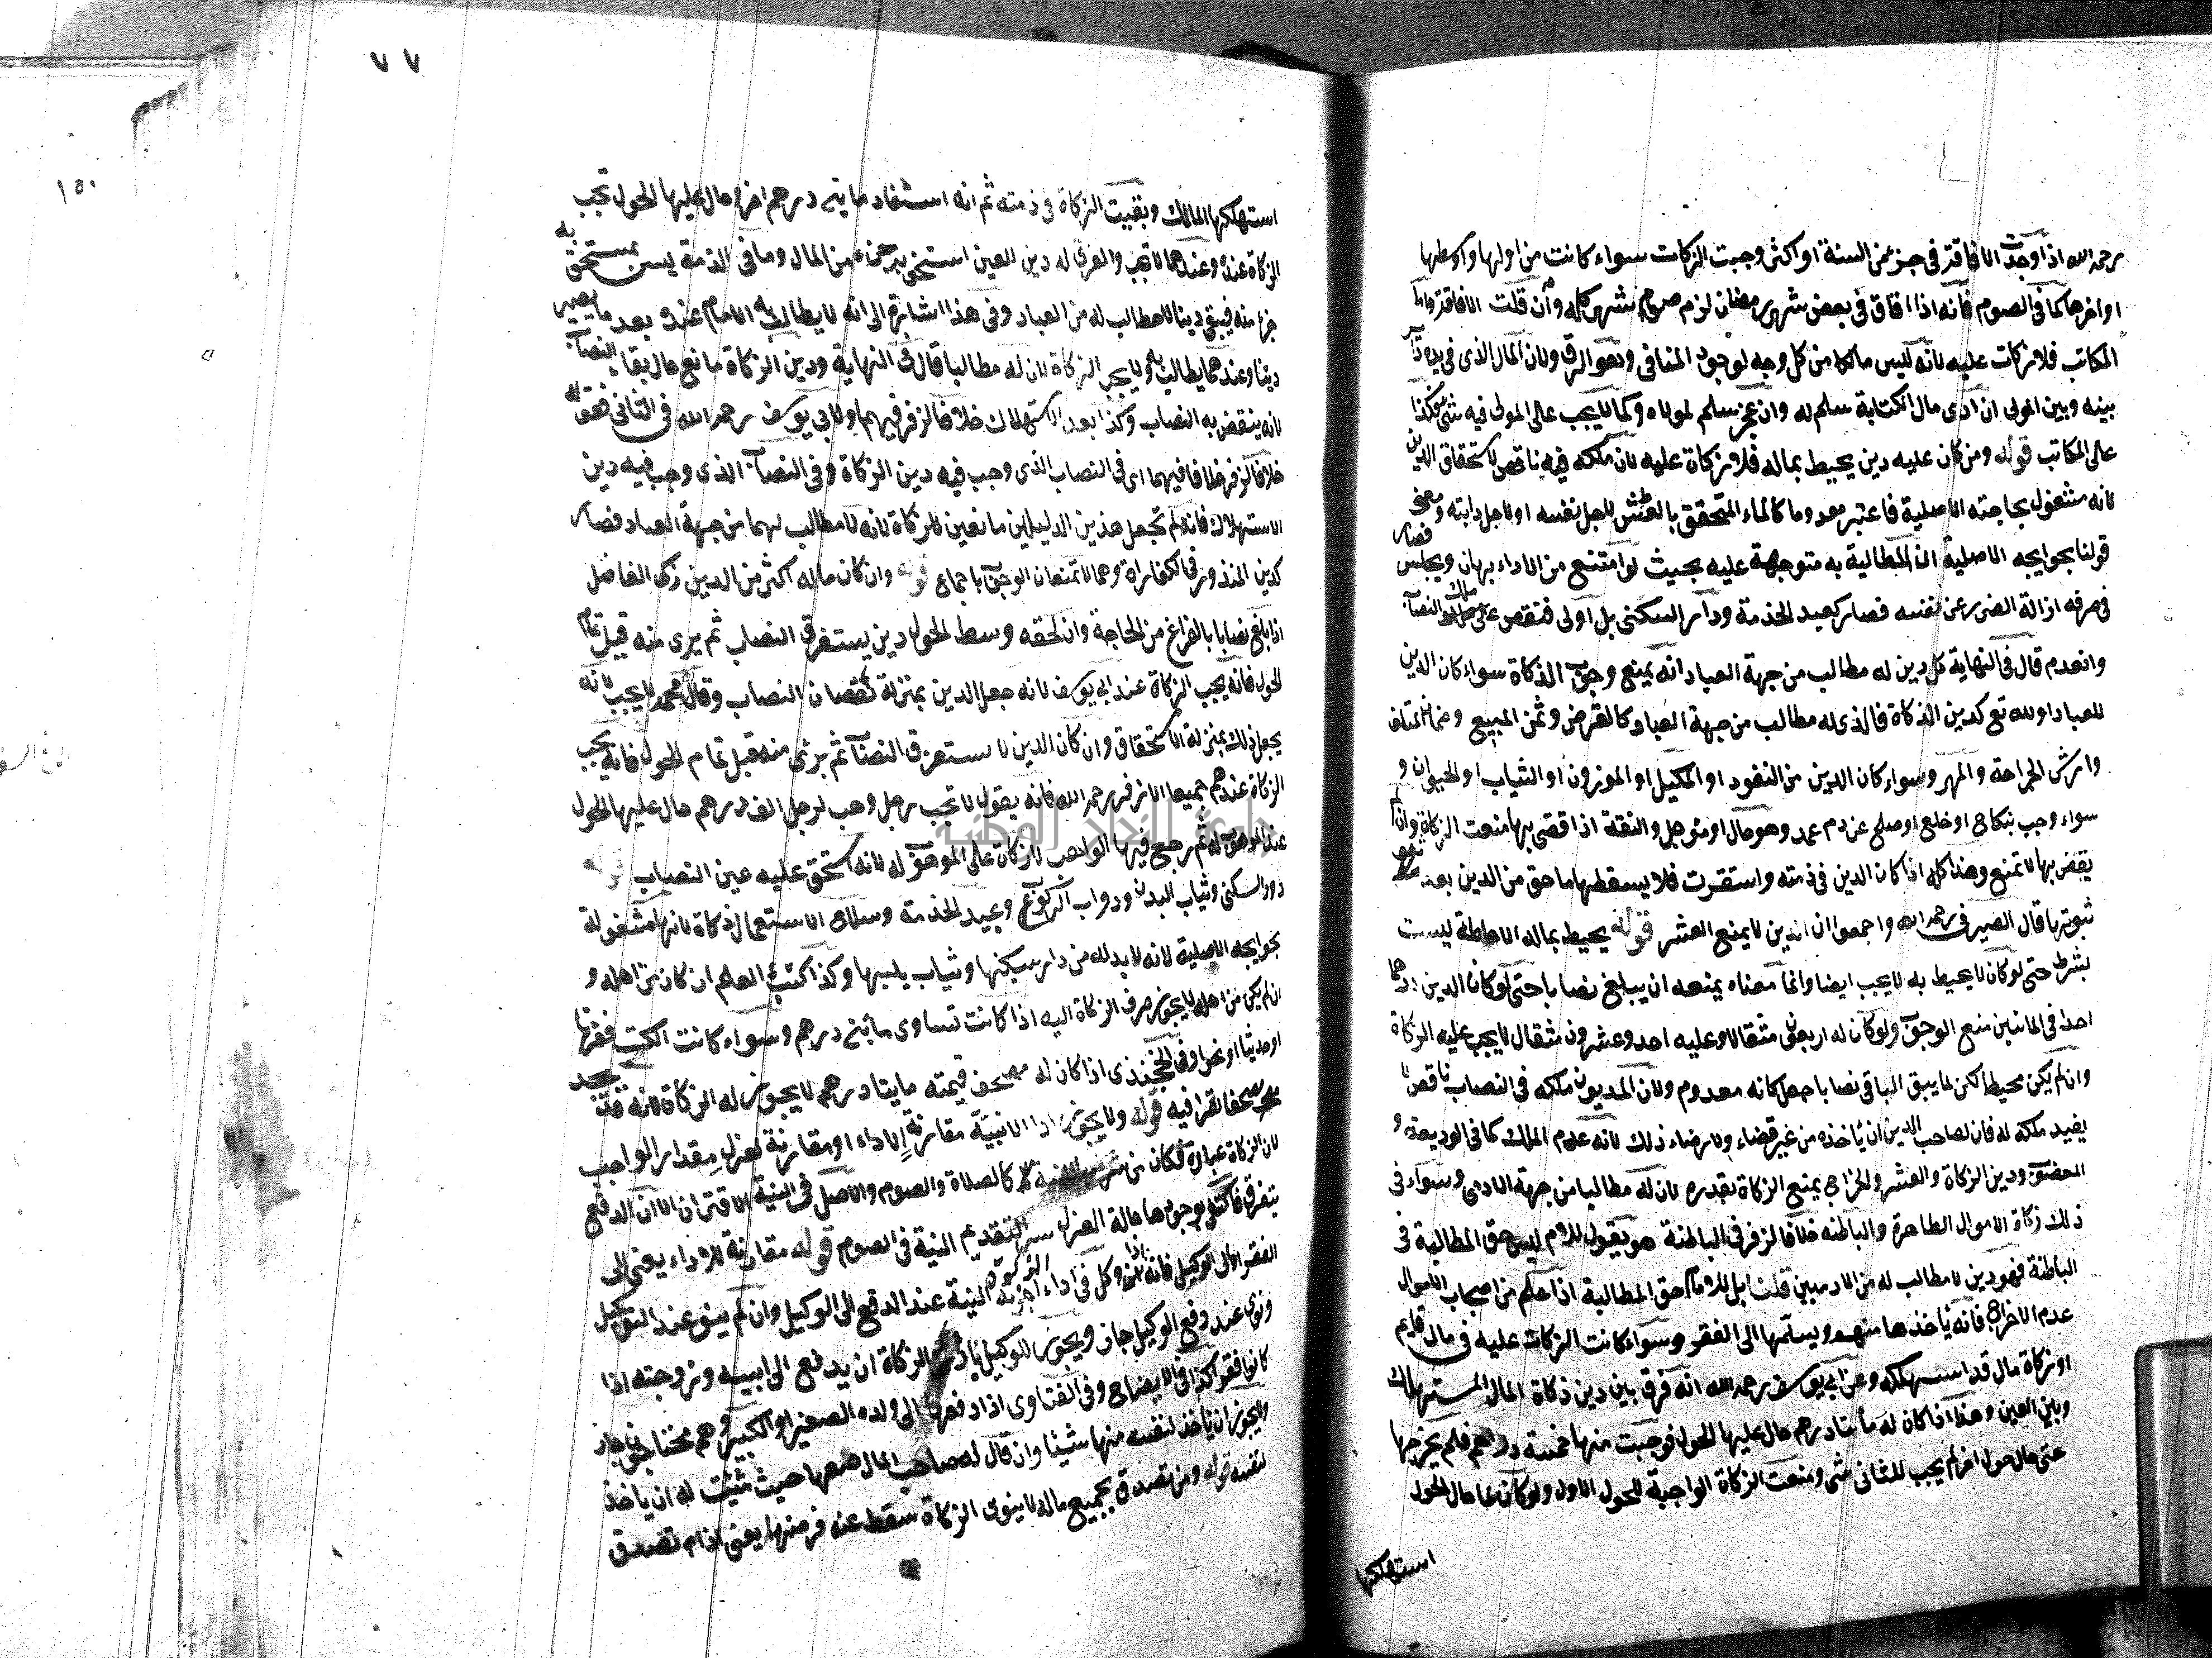 رحمه الله اذا وجدت الافاقة في جزء من السنة او اكثر وجبت الزكات سواء كانت من اولها واوسطها
او اخرها كما في الصوم فانه اذا افاق في بعض شهر رمضان لزم صوم شهر كله وان قلت الافاقة واما
المكاتب فلا زكات عليه لانه ليس مالكا من كل وجه لوجود المنافي وهو الرق ولان المال الذي في يده دائر
بينه وبين المولى ان ادى مال الكتابة سلم له وان عجز سلم لمولاه وكما لا يجب على المولى فيه شئ فكذا
على المكاتب قوله ومن كان عليه دين يحيط بماله فلا زكاة عليه لان ملكه فيه ناقص لاستحقاق الدين
لانه مشغول بحاجته الاصلية فاعتبر معدوما كالماء المستحق بالعطش لاجل نفسه او لاجل دابته ومعنى
قولنا بحوايجه الاصلية ان المطالبة به متوجهة عليه بحيث لو امتنع من الاداء يهان ويحبس فصار
في صرفه ازالة الضرر عن نفسه فصار كعبد الخدمة ودار السكنى بل اولى فنقص ملك النصاب
وانعدم قال في النهاية كل دين له مطالب من جهة العباد انه يمنع وجوب الذكاة سواء كان الدين
للعباد او لله تع كدين الذكاة فالذي له مطالب من جهة العباد كالقرض وثمن المبيع وضمان المتلف
وارش الجراحة والمهر وسواء كان الدين من النقود او المكيل او الموزون او الثياب او الحيوان و
سواء وجب بنكاح او خلع او صلح عن دم عمد وهو حال او مؤجل والنفقة اذا قضى بها منعت الزكاة وان لم
يقض بها لا تمنع وهذا كله اذا كان الدين في ذمته واستقرت فلا يسقطها ما لحق من الدين بعد
ثبوتها قال الصيرفي رحمه الله واجمعوا ان الدين لا يمنع العشر قوله يحيط بماله الاحاطة ليست
بشرط حتى لو كان لا يحيط به لا يجب ايضا وانما معناه يمنعه ان يبلغ نصابا حتى لو كان الدين درهما
احدا في المائتين منع الوجوب ولو كان له اربعون مثقالا وعليه احد وعشرون مثقال لا يجب عليه الزكاة
وان لم يكن محيطا لكن لما يبق الباقي نصابا جعل كانه معدوم ولان المديون ملكه في النصاب ناقص لا
يفيد ملكه له فان لصاحب الدين ان ياخذه من غير قضاء ولا رضاء ذلك لانه عدم الملك كما في الوديعة و
المغصوبة ودين الزكاة والعشر والخراج يمنع الزكاة بقدره لان له مطالبا من جهة الادمي وسواء في
ذلك زكاة الاموال الظاهرة والباطنه خلافا لزفر في الباطنة هو يقول للامام ليس حق المطالبة في
الباطنة فهو دين لا مطالب له من الادميين قلنا بل للامام حق المطالبة اذا علم من اصحاب الاموال
عدم الاخراج فانه ياخذها منهم ويسلمها الى الفقر وسواء كانت الزكات عليه في مال قايم
او زكاة مال قد استهلكه وعن ابي يوسف رحمه الله انه فرق بين دين ذكاة المال المستهلك
وبين العين وهذا اذا كان له مائتا درهم حال عليها الحول فوجبت منها خمسة دراهم فلم يخرجها
حتى حال حول اخر لم يجب للثاني شئ ومنعت الزكاة الواجبة للحول الاول ولو كان لما حال الحول
استهلكها
٧٧
١٥٠
استهلكها المالك وبقيت الزكاة في ذمته ثم انه استفاد مايتي درهم اخر وحال عليها الحول تجب
الزكاة عنده وعندهما لا تجب والفرق له دين العين استحق به جزء من المال وما في الذمة ليس بمستحق به
جزء منه فيبقى دينا لا مطالب له من العباد وفي هذا اشارة الى انه لا يطالب به الامام عنده بعد ما يصير
دينا وعندهما يطالب به ولا يجب الزكاة لان له مطالبا قال في النهاية ودين الزكاة مانع حال بقا النصاب
لانه ينقض به النصاب وكذا بعد الاستهلاك خلافا لزفر فيهما ولابي يوسف رحمه الله في الثاني قوله
خلافا لزفر خلافا فيهما اى في النصاب الذي وجب فيه دين الزكاة وفي النصاب الذي وجب فيه دين
الاستهلاك فانه لم تجعل هذين الدينين مانعين للزكاة لانه لا مطالب لهما من جهة العباد فصار
كدين المنذور في الكفاراة وهما لا تمنعان الوجوب باجماع قوله وان كان ماله اكثر من الدين زكى الفاضل
اذا بلغ نصابا بالفراغ من الحاجة وان لحقه وسط الحول دين يستغرق النصاب ثم يرى منه قبل تمام
الحول فانه يجب الزكاة عند ابي يوسف لانه جعل الدين بمنزلة نقصان النصاب وقال محمد لا يجب لانه
يجعل ذلك بمنزلة الاستحقاق وان كان الدين لا يستغرق النصاب ثم برئ منه قبل تمام الحول فانه يجب
الزكاة عندهم جميعا الا زفر رحمه الله فانه يقول لا تجب رجل وهب لرجل الف درهم حال عليها الحول
عند الموهوب له ثم رجع فيها الواهب لا زكات على الموهوب له لانه استحق عليه عين النصاب قوله
دور السكنى وثياب البدن ودواب الركوب وعبيد الخدمة وسلاح الاستعمال ذكاة لانها مشغولة
بحوايجه الاصلية لانه لا بد له من دار يسكنها وثياب يلبسها وكذا كتب العلم ان كان من اهله و
ان لم يكن من اهله لا يجوز صرف الزكاة اليه اذا كانت تساوى مائتي درهم وسواء كانت الكتب فقها
او حديثا او نحوا وفي الخجندى اذا كان له مصحف قيمته مايتا درهم لا يجوز له الزكاة لانه قد يجد
مصحفا يقرا فيه قوله ولا يجوز اداء الا بنية مقارنة للاداء او مقارنة لعزل مقدار الواجب
لان الزكاة عبادة فكان من شرطها النية كالصلاة والصوم والاصل في النية الاقتران الا ان الدفع
يتفرق فاكتفى بوجودها حالة العزل كتقديم النية في الصوم قوله مقارنة للاداء يعني الى
الفقير او الى الوكيل فانه اذا وكل في اداء الزكوة اجزته النية عند الدفع الى الوكيل وان لم ينو عند التوكيل
ونوى عند دفع الوكيل جاز ويجوز للوكيل باداء الزكاة ان يدفع الى ابيه وزوجته اذا
كانوا فقراء كذا في الايضاح وفي الفتاوى اذا دفعها الى ولده الصغير او الكبير وهم محتاجون جاز
ولا يجوز ان ياخذ لنفسه منها شيئا وان قال له صاحب المال ضعها حيث شئت له ان ياخذ
لنفسه قوله ومن تصدق بجميع ماله لا ينوى الزكاة سقط عنه فرضها يعني اذا تصدق